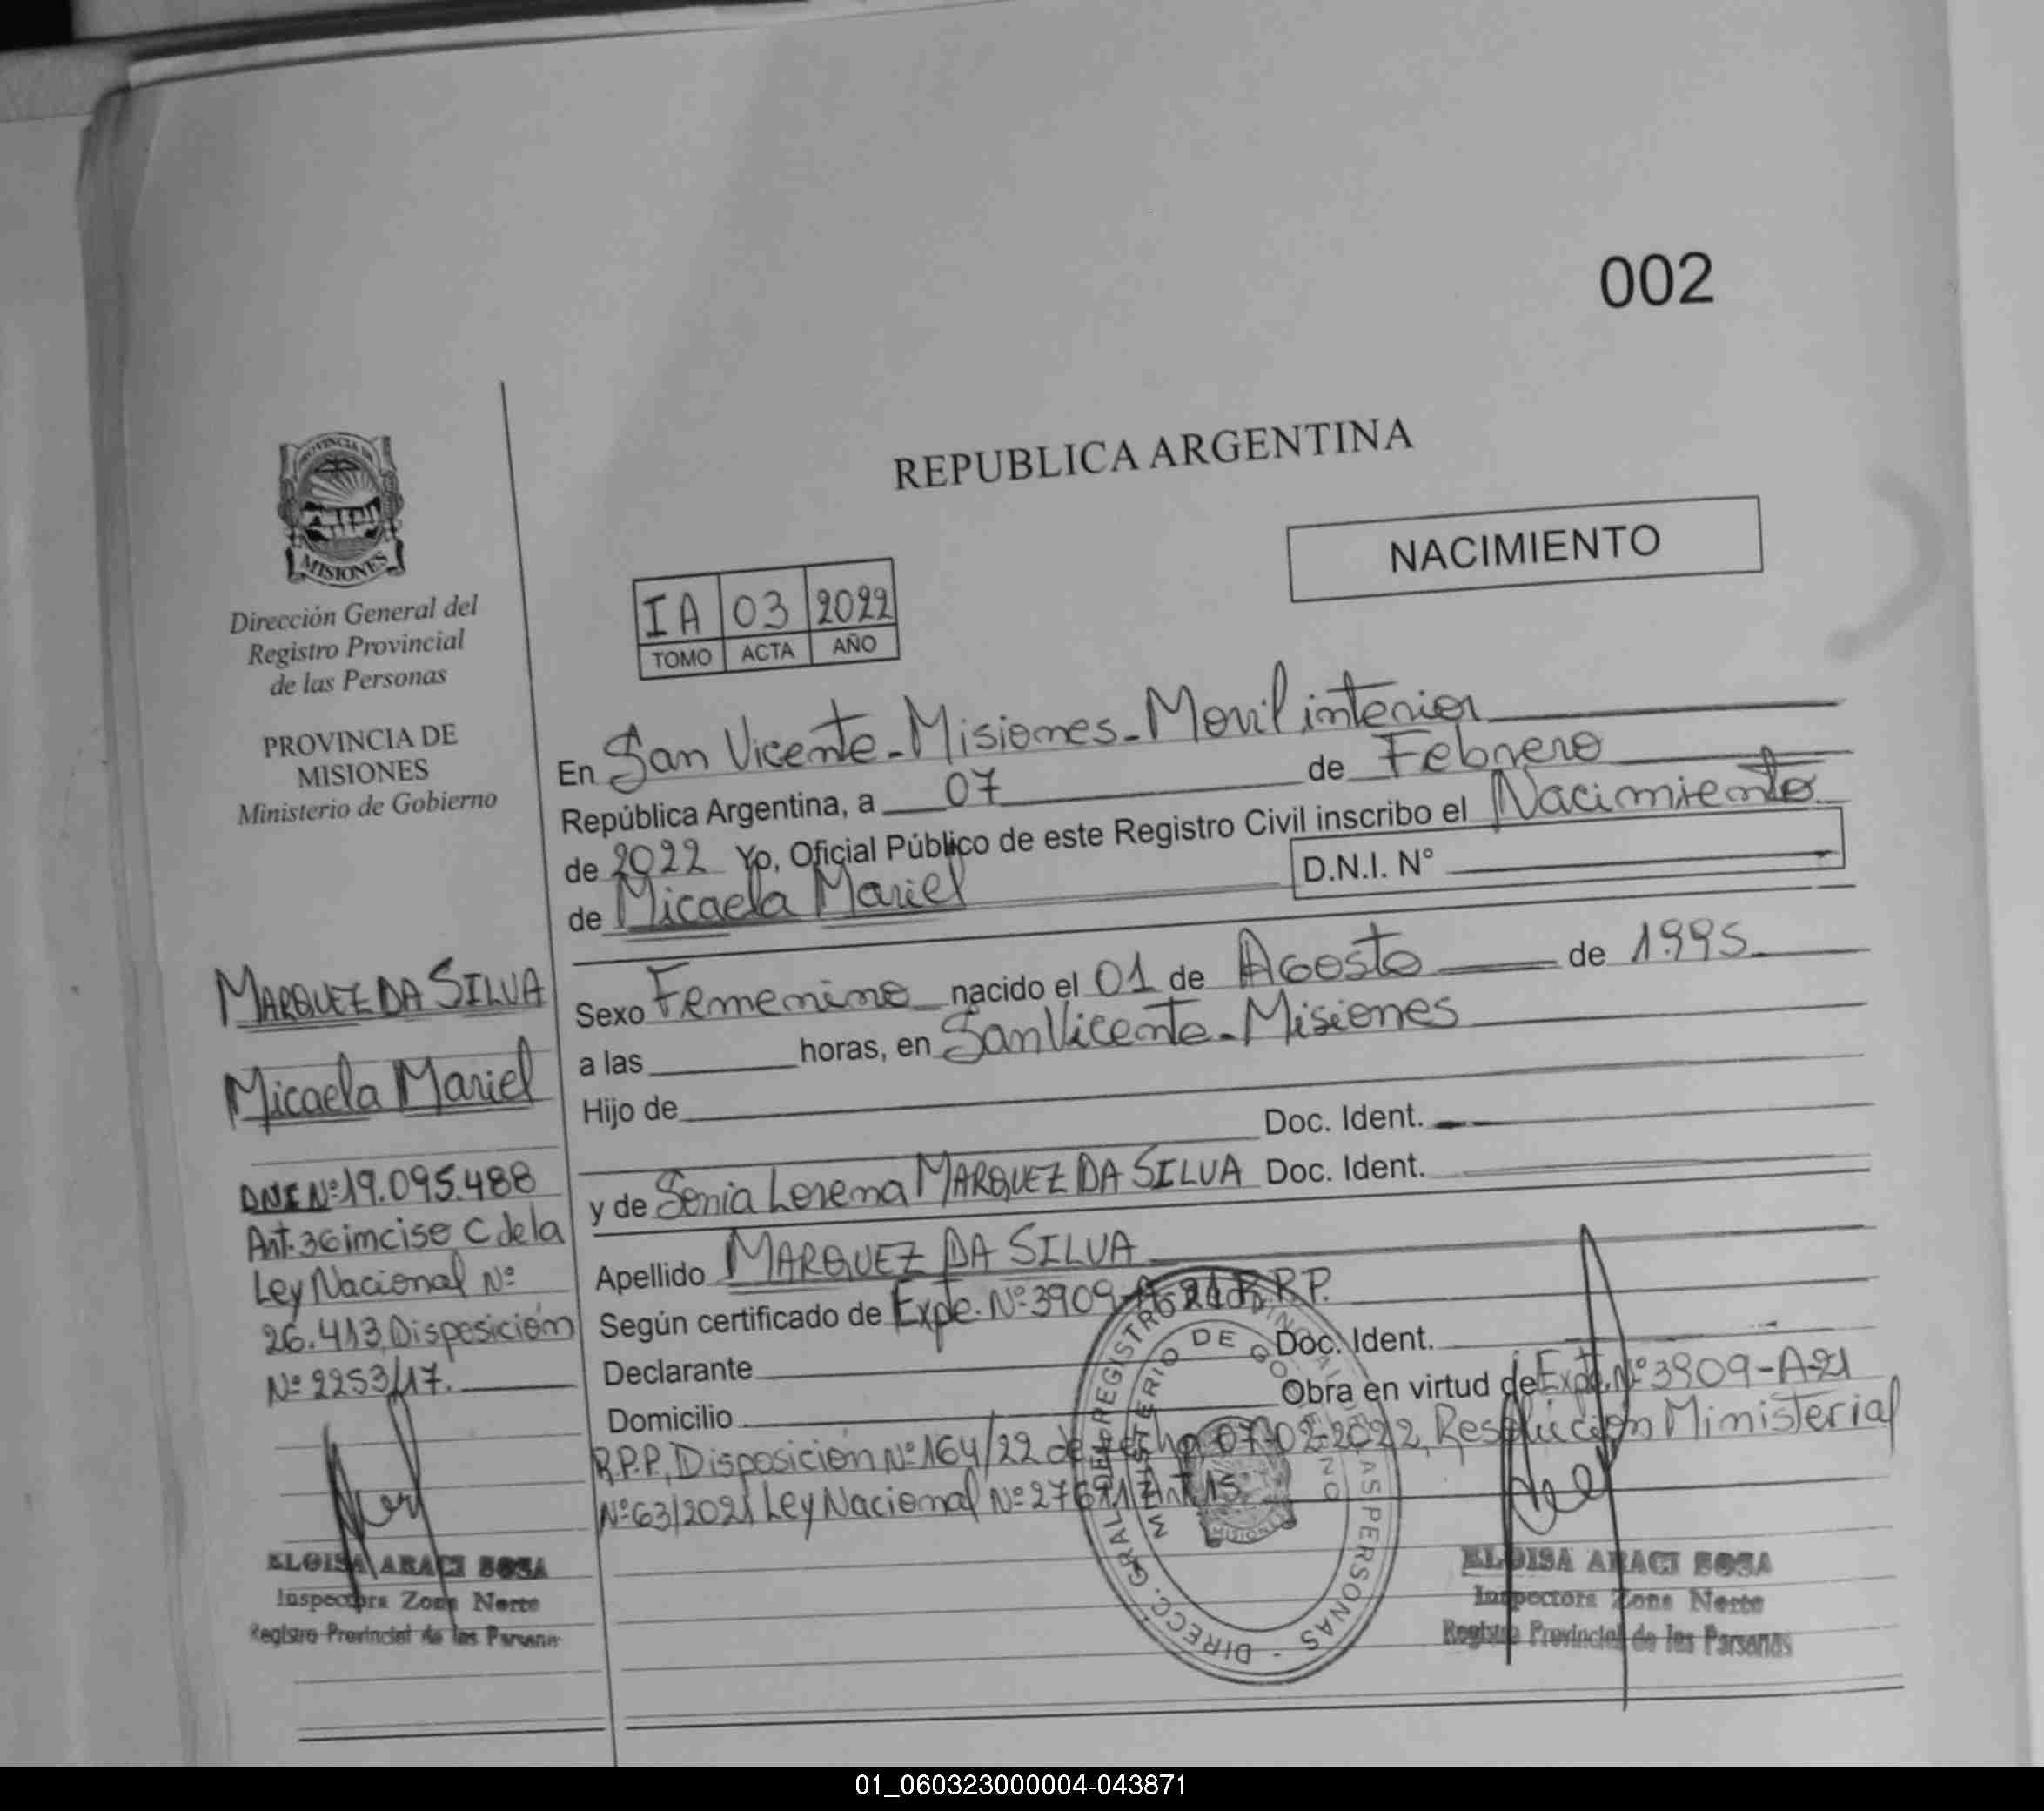 002
PROVINCIA DE
MISIONES
Dirección General del
Registro Provincial
de las Personas
PROVINCIA DE
MISIONES
Ministerio de Gobierno
MARQUEZ DA SILVA
Micaela Mariel
DNI Nº 19.095.488
Art. 36 inciso C de la
Ley Nacional Nº
26.413, Disposición
Nº 2253/17.
ELOISA ARACI SOSA
Inspectora Zona Norte
Registro Provincial de las Personas
REPUBLICA ARGENTINA
NACIMIENTO
IA 03 2022
TOMO ACTA AÑO
En San Vicente - Misiones - Movil interior
República Argentina, a 07 de Febrero
de 2022 Yo, Oficial Público de este Registro Civil inscribo el Nacimiento
de Micaela Mariel D.N.I. N°
Sexo Femenino nacido el 01 de Agosto de 1995
a las horas, en San Vicente - Misiones
Hijo de
Doc. Ident.
y de Sonia Lorena MARQUEZ DA SILVA Doc. Ident.
Apellido MARQUEZ DA SILVA
Según certificado de Expte. Nº 3909-A-21 R.P.P.
Declarante Doc. Ident.
Domicilio Obra en virtud de Expte. Nº 3909-A-21
R.P.P, Disposición Nº 164/22 de fecha 07-02-2022, Resolución Ministerial
Nº 63/2021 Ley Nacional Nº 27611 Art. 15.
DIRECC. GRAL. DEL REGISTRO PROVINCIAL DE LAS PERSONAS
MINISTERIO DE GOBIERNO
MISIONES
ELOISA ARACI SOSA
Inspectora Zona Norte
Registro Provincial de las Personas
01_060323000004-043871